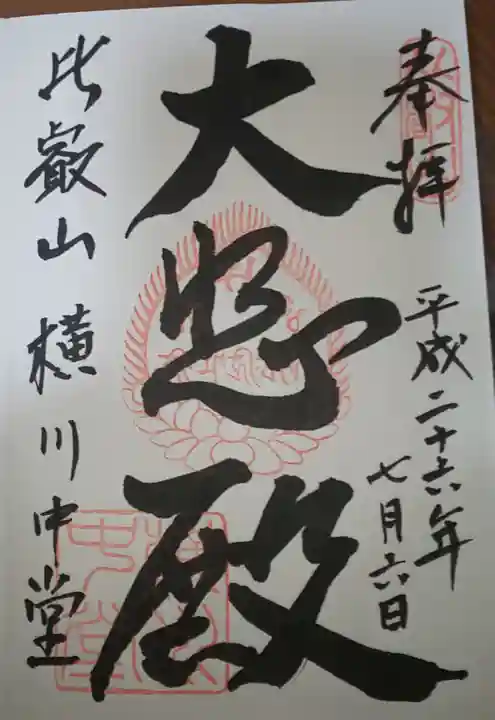 奉拝
平成二十六年
七月六日
大悲殿
比叡山横川中堂